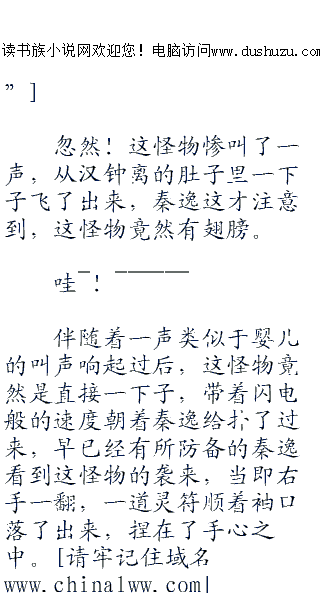 读书族小说网欢迎您！电脑访问www.dushuzu.com
”]
忽然！这怪物惨叫了一
声，从汉钟离的肚子里一下
子飞了出来，秦逸这才注意
到，这怪物竟然有翅膀。
哇¯！¯¯¯¯
伴随着一声类似于婴儿
的叫声响起过后，这怪物竟
然是直接一下子，带着闪电
般的速度朝着秦逸给扑了过
来，早已经有所防备的秦逸
看到这怪物的袭来，当即右
手一翻，一道灵符顺着袖口
落了出来，捏在了手心之
中。[请牢记住域名
www.china1ww.com]